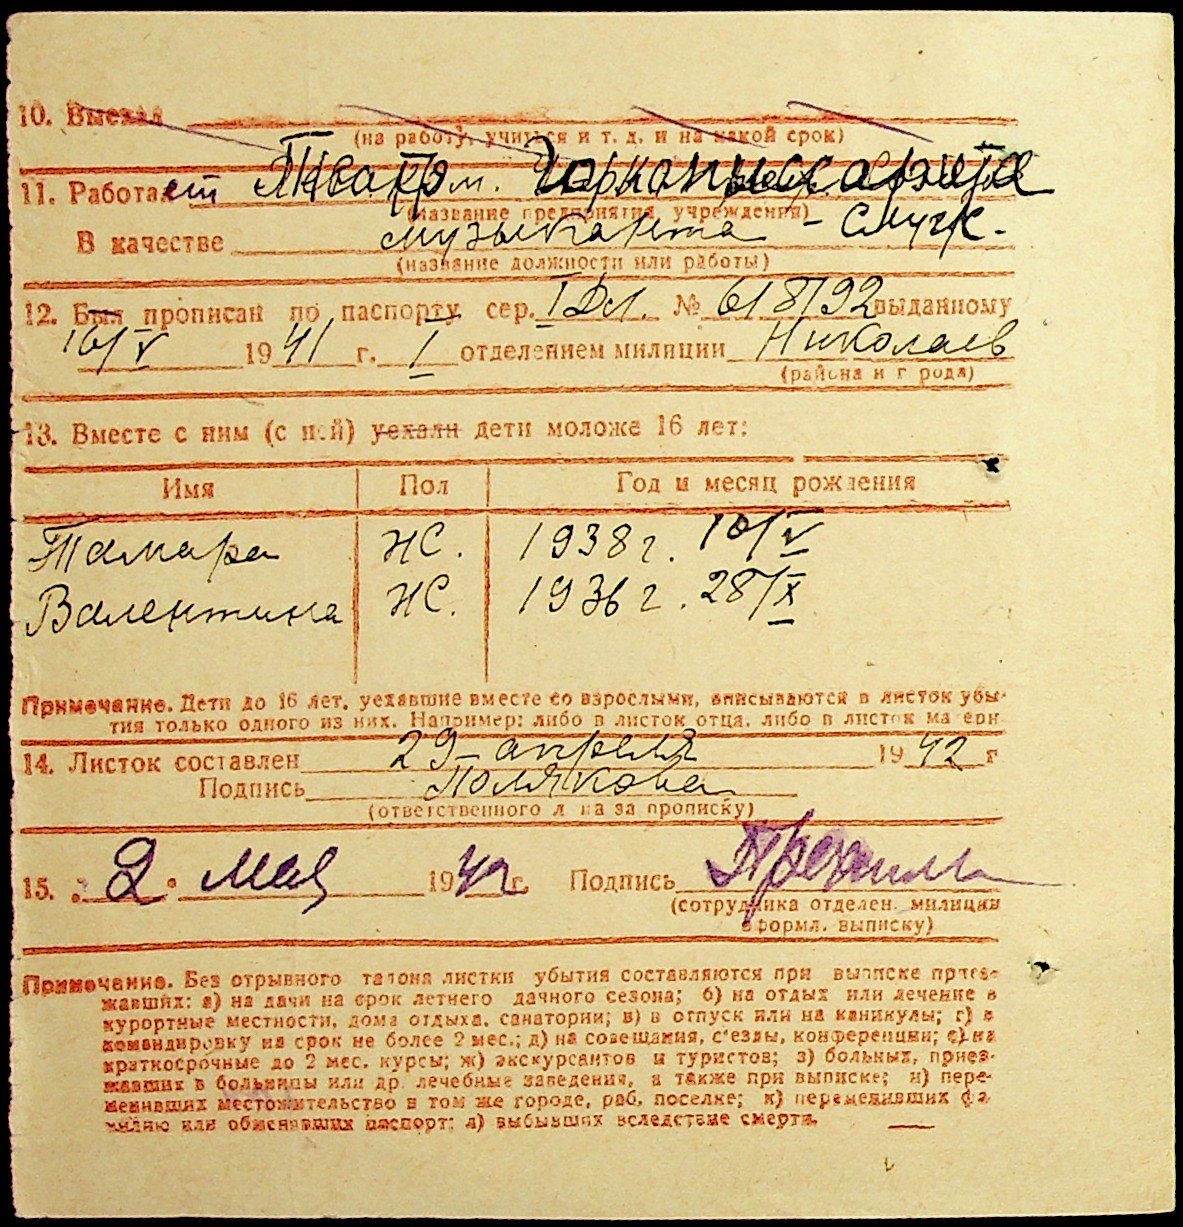 10. Выехал
(на работу, учиться и т. д. и на какой срок)
11. Работает
(название предприятия, учреждения)
В качестве музыканта -
(название должности или работы)
12. Был прописан по паспорту сер. № 618192 выданному
16/V 1941 г. I отделением милиции Николаев
(района и города)
13. Вместе с ним (с ней) уехали дети моложе 16 лет:
Имя Пол Год и месяц рождения
Тамара ж. 1938 г. 10/V
Валентина ж. 1936 г. 28/X
Примечание. Дети до 16 лет, уехавшие вместе со взрослыми, вписываются в листок убы-
тия только одного из них. Например: либо в листок отца, либо в листок матери
14. Листок составлен 29 - апреля 1942 г
Подпись Полякова
(ответственного лица за прописку)
15. 2 • мая 1942 г. Подпись
(сотрудника отделен. милиции
оформл. выписку)
Примечание. Без отрывного талона листки убытия составляются при выписке приез-
жавших: а) на дачи на срок летнего дачного сезона; б) на отдых или лечение в
курортные местности, дома отдыха, санатории; в) в отпуск или на каникулы; г) в
командировку на срок не более 2 мес.; д) на совещания, с'езды, конференции; е) на
краткосрочные до 2 мес. курсы; ж) экскурсантов и туристов; з) больных, приез-
жавших в больницы или др. лечебные заведения, а также при выписке; и) пере-
менивших местожительство в том же городе, раб. поселке; к) переменивших фа-
милию или обменявших паспорт; л) выбывших вследствие смерти.